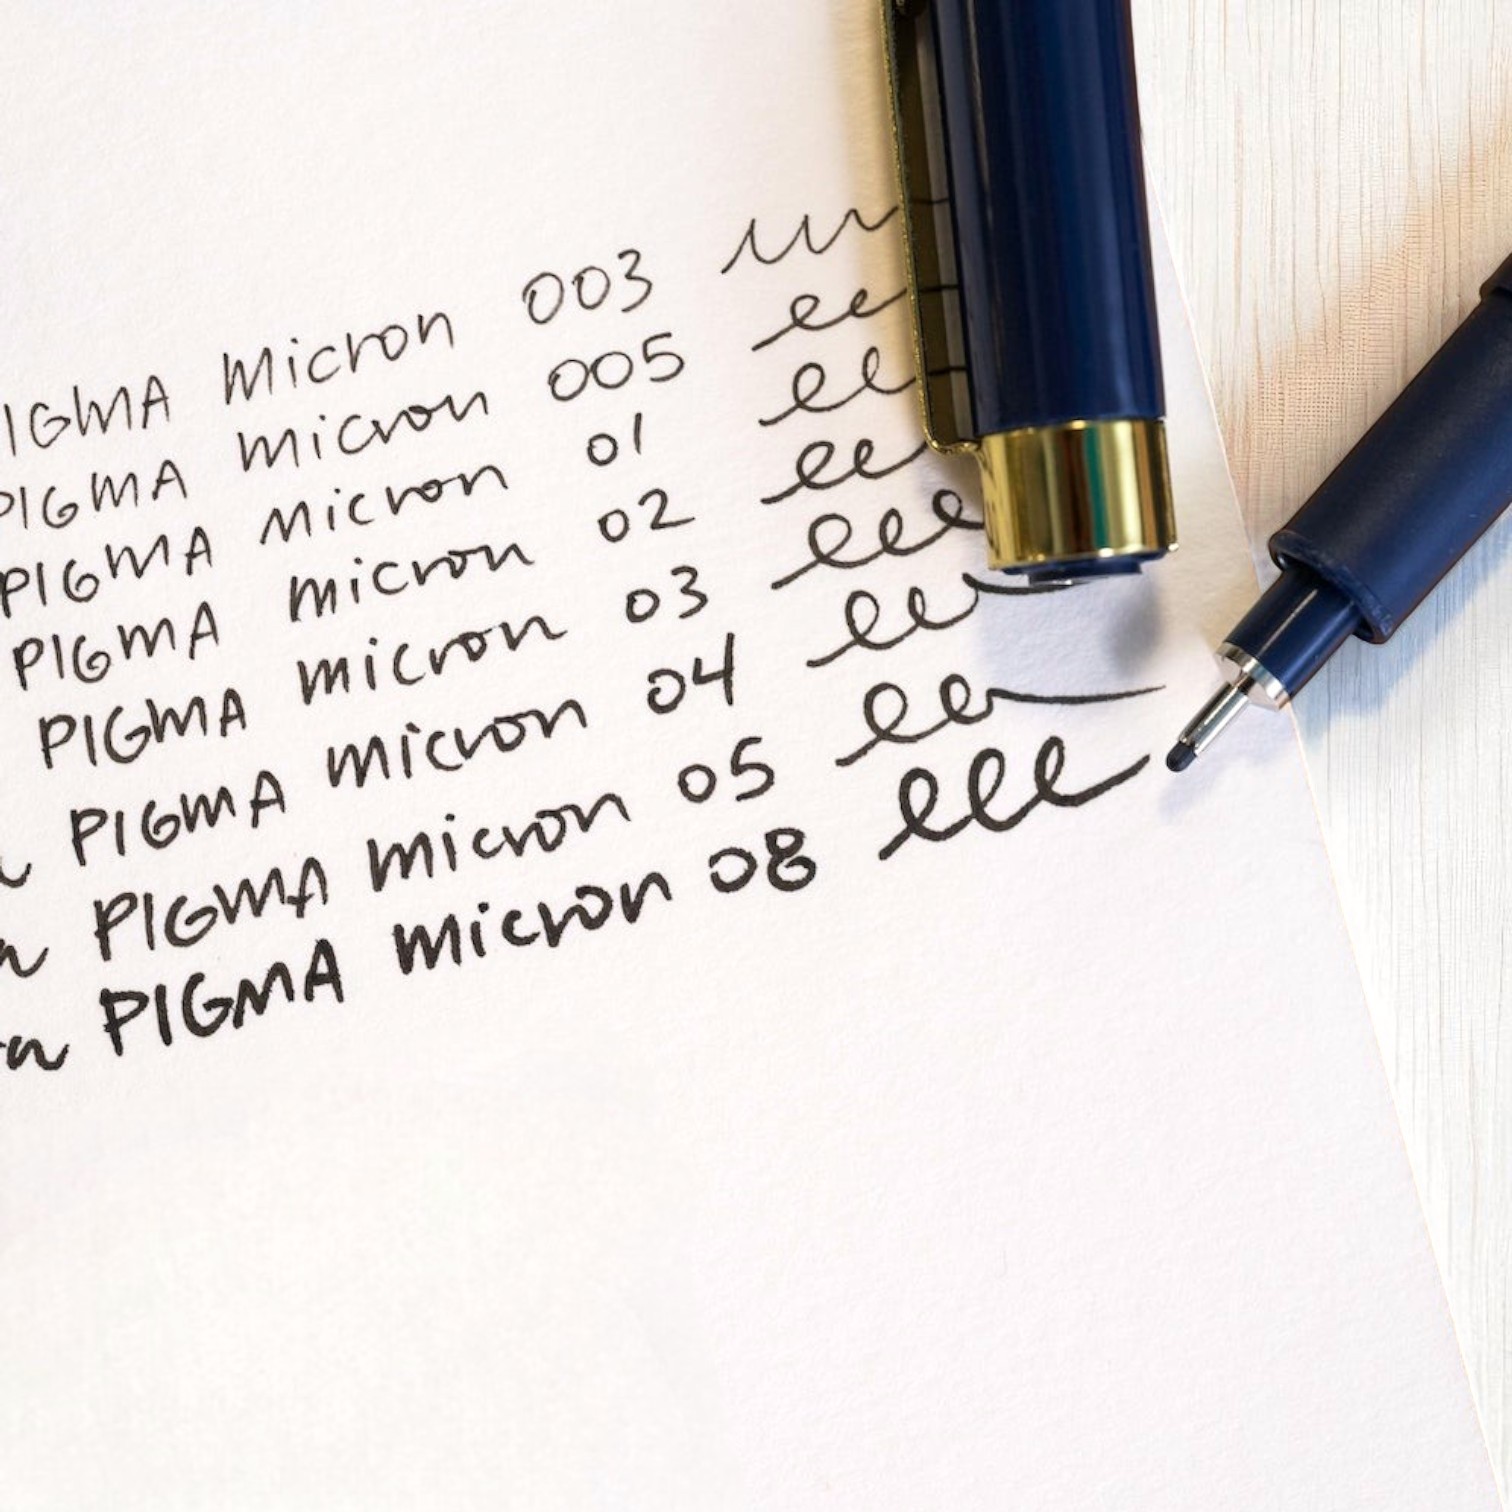 PIGMA Micron 003
PIGMA micron 005
PIGMA Micron 01
PIGMA micron 02
PIGMA micron 03
PIGMA micron 04
PIGMA micron 05
PIGMA micron 08